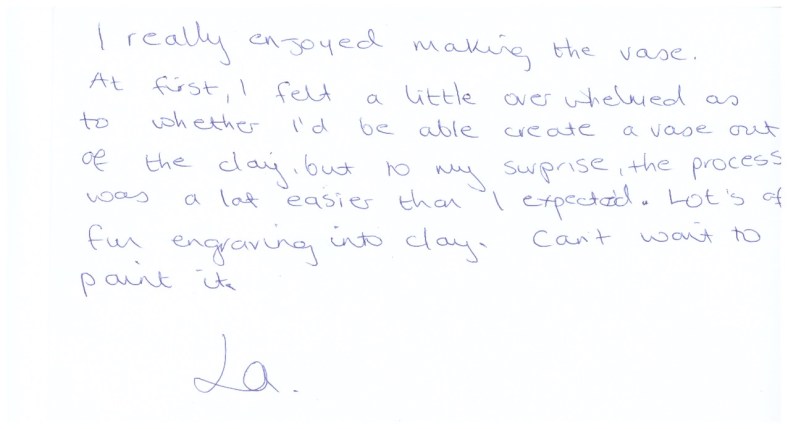 I really enjoyed making the vase.
At first, I felt a little over whelmed as
to whether I'd be able create a vase out
of the clay, but to my surprise, the process
was a lot easier than I expected. Lot's of
fun engraving into clay. Can't wait to
paint it.
La.